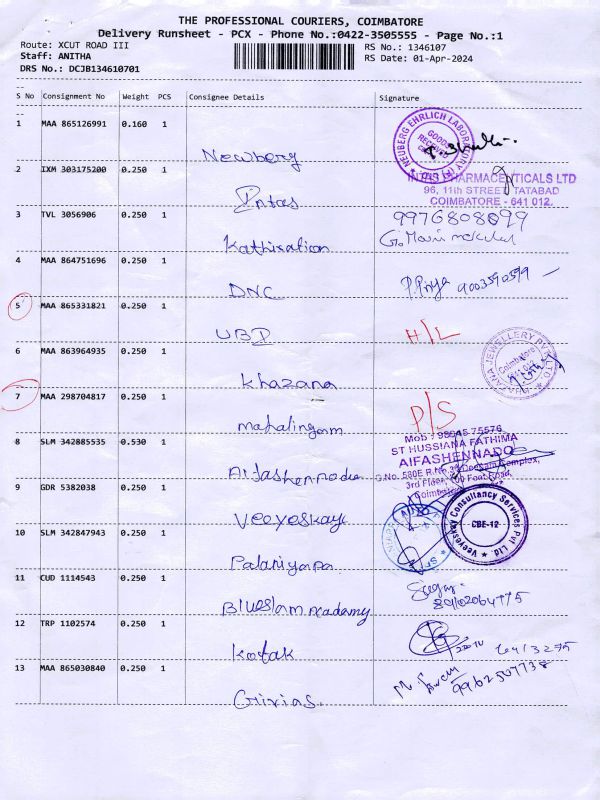 THE PROFESSIONAL COURIERS, COIMBATORE
Delivery Runsheet - PCX - Phone No.:0422-3505555 - Page No.:1
Route: XCUT ROAD III RS No.: 1346107
Staff: ANITHA RS Date: 01-Apr-2024
DRS No.: DCJB134610701
S No Consignment No Weight PCS Consignee Details Signature
1 MAA 865126991 0.160 1 Newberg
NEUBERG EHRLICH LABORATORY
GOODS RECEIVED
2 IXM 303175200 0.250 1 Intas
PHARMACEUTICALS LTD
96, 11th STREET TATABAD
COIMBATORE - 641 012.
3 TVL 3056906 0.250 1 Kathiravan
9976808099
4 MAA 864751696 0.250 1 DNC
P.Priya 9003590599
5 MAA 865331821 0.250 1 UBI H/L
6 MAA 863964935 0.250 1 Khazana
JEWELLERY PVT LTD
Coimbatore
7 MAA 298704817 0.250 1 mahalingam P/S
8 SLM 342885535 0.530 1 Aifashennado
Mob : 98945 75576
ST HUSSIANA FATHIMA
AIFASHENNADO
Complex,
3rd Floor, 100 Feet Road,
Coimbatore
9 GDR 5382038 0.250 1 Veeyeskay
Veeyeskay Consultancy Services Pvt. Ltd.
CBE-12
10 SLM 342847943 0.250 1 Palaniyapa
11 CUD 1114543 0.250 1 Blueslam academy
12 TRP 1102574 0.250 1 Kotak
6413275
13 MAA 865030840 0.250 1 Girias
9962507738